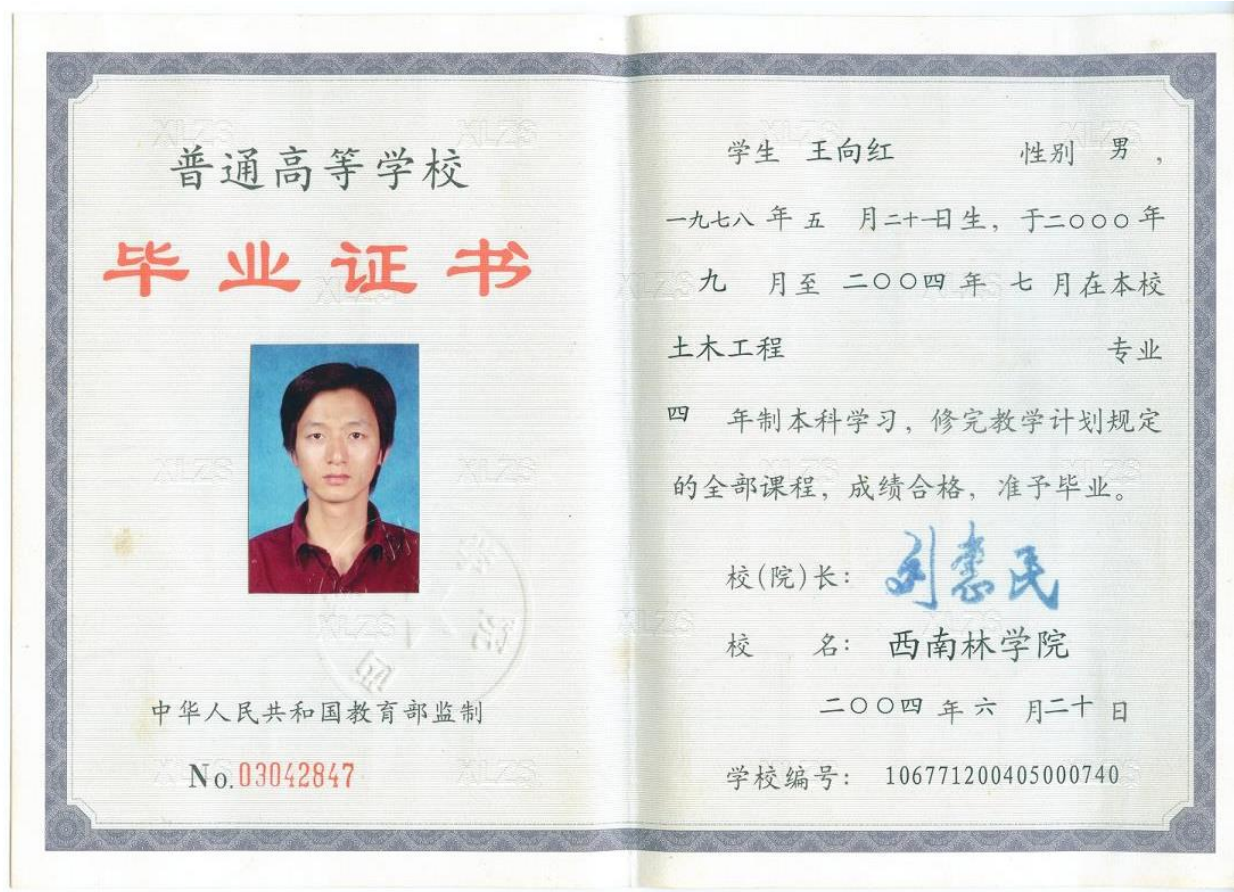 普通高等学校
毕业证书
中华人民共和国教育部监制
No.03042847
学生 王向红 性别 男,
一九七八 年 五 月二十一日生, 于二〇〇〇年
九 月至 二〇〇四 年 七 月在本校
土木工程 专业
四 年制本科学习, 修完教学计划规定
的全部课程, 成绩合格, 准予毕业。
校(院)长:
校 名: 西南林学院
二〇〇四 年 六 月二十 日
学校编号: 106771200405000740
XLZS